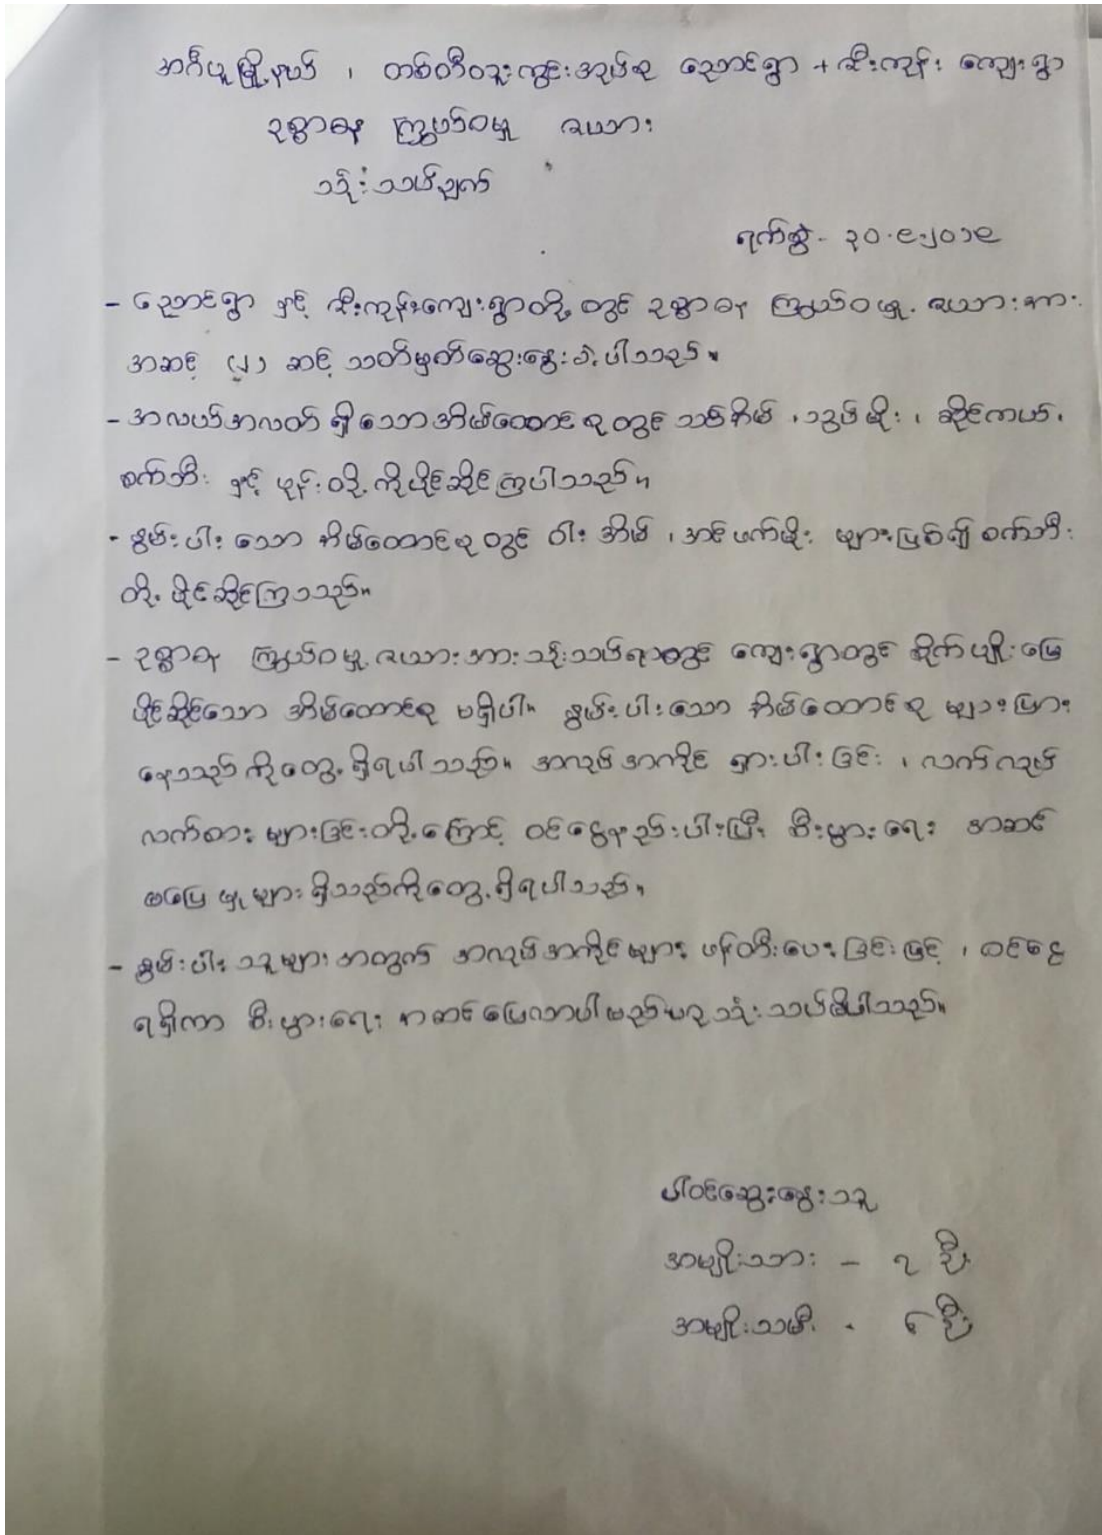 အင်္ဂပူမြို့နယ် ၊ တစ်တီတူးကွင်းအုပ်စု ညောင်ရွာ + ဇီးကုန်း ကျေးရွာ
ဥစ္စာဓန ကြွယ်ဝမှု ဇယား
သုံးသပ်ချက်
ရက်စွဲ - ၃၀.၉.၂၀၁၉
- ညောင်ရွာ နှင့် ဇီးကုန်းကျေးရွာတို့ တွင် ဥစ္စာဓန ကြွယ်ဝမှု ဇယားအား
အဆင့် (၂) ဆင့် သတ်မှတ်ဆွေးနွေးခဲ့ပါသည်။
- အလယ်အလတ် ရှိသောအိမ်ထောင်စုတွင် သစ်အိမ် ၊ သွပ်မိုး ၊ ဆိုင်ကယ် ၊
စက်ဘီး နှင့် ဖုန်းတို့ ကိုပိုင်ဆိုင်ကြပါသည်။
- နွမ်းပါး သော အိမ်ထောင်စုတွင် ဝါး အိမ် ၊ အင်ဖက်မိုး များဖြစ်၍ စက်ဘီး
တို့ ပိုင်ဆိုင်ကြသည်။
- ဥစ္စာဓန ကြွယ်ဝမှု ဇယားအား သုံးသပ်ရာတွင် ကျေးရွာတွင် စိုက်ပျိုးမြေ
ပိုင်ဆိုင်သော အိမ်ထောင်စု မရှိပါ။ နွမ်းပါးသော အိမ်ထောင်စု များပြား
နေသည် ကိုတွေ့ရှိရပါသည်။ အလုပ်အကိုင် ရှားပါးခြင်း ၊ လက်လုပ်
လက်စား များခြင်းတို့ကြောင့် ဝင်ငွေနည်းပါးပြီး စီးပွားရေး အဆင်
မပြေ မှု များ ရှိသည်ကိုတွေ့ရှိရပါသည်။
- နွမ်းပါး သူများအတွက် အလုပ်အကိုင်များ ဖန်တီးပေး ခြင်းဖြင့် ၊ ဝင်ငွေ
ရရှိကာ စီးပွားရေး အဆင်ပြေလာပါမည်ဟု သုံးသပ်မိပါသည်။
ပါဝင်ဆွေးနွေးသူ
အမျိုးသား - ၇ ဦး
အမျိုးသမီး - ၆ ဦး